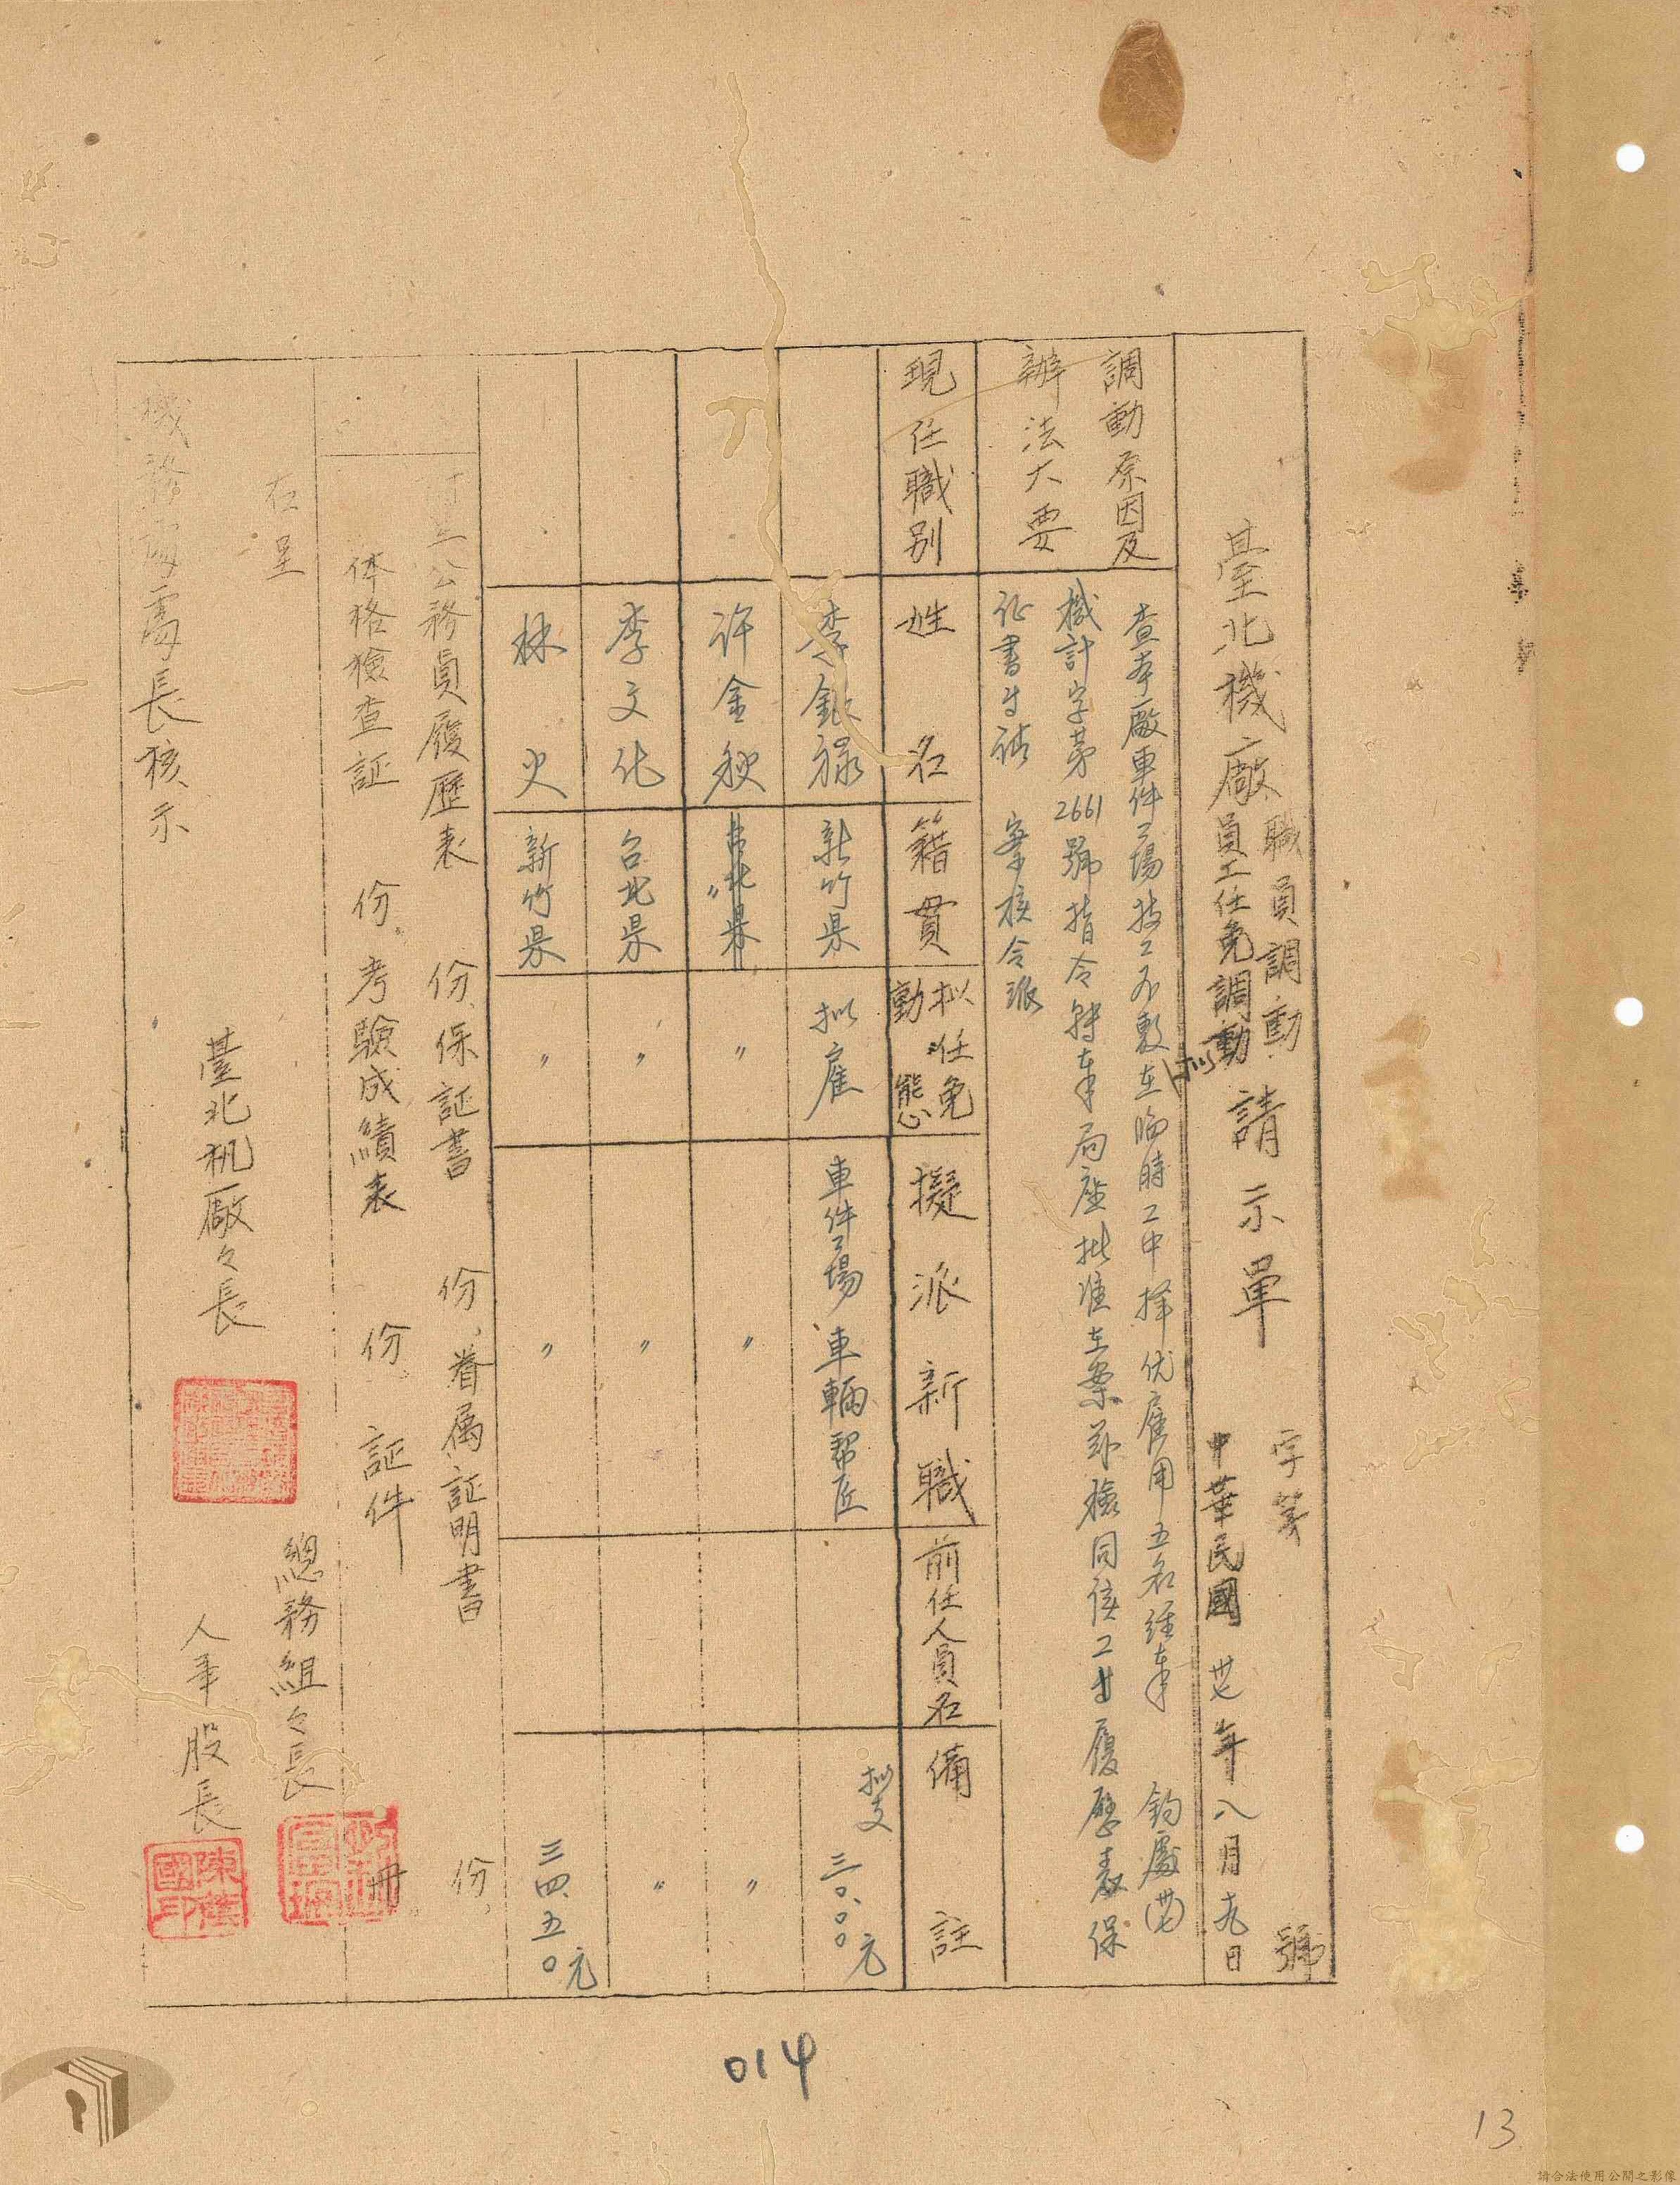 臺北機廠
職員調動
員工任免調動
請示單
字第 號
中華民國 卅七年八月九日
調動原因及
辦法大要
查本廠車件工場技工不敷在臨時工中擇优雇用五名經奉 鈞處
機計字第2661號指令轉奉局座批准在案茲檢同該工等履歷表保
证書 案核令派
現任職別
姓名
籍貫
拟任免
動態
擬派新職
前任人員名
備註
李銀祿
新竹県
拟雇
車件工場車輛帮匠
拟支
三〇.〇〇元
许金秋
〃
〃
〃
〃
李文化
台北県
〃
〃
〃
林火
新竹県
〃
〃
三四.五〇元
公務員履歷表 份、保証書 份、眷属証明書 份、
体格檢查証 份、考驗成績表 份、証件 冊
右呈
機務處處長核示
臺北机廠々長
總務組々長
人事股長
014
13
請合法使用公開之影像